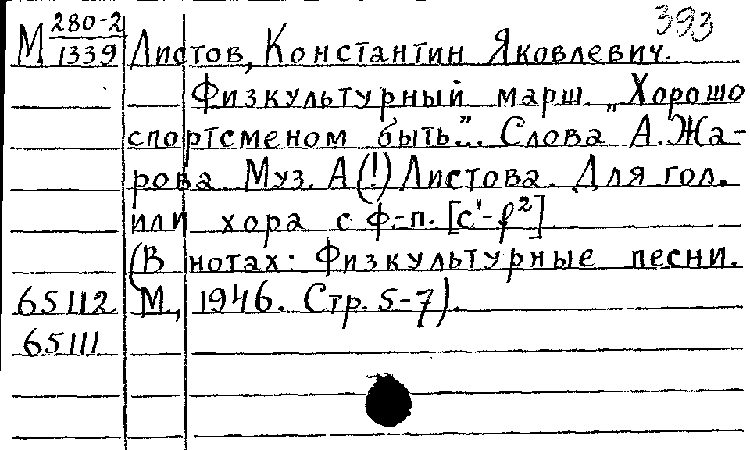 393
М 280-2/1339 Листов, Константин Яковлевич.
Физкультурный марш. „Хорошо
спортсменом быть”. Слова А. Жа-
рова Муз. А(!) Листова. Для гол.
или хора с ф.-п. [c¹-f²]
(В нотах: Физкультурные песни.
65112 М., 1946. Стр. 5-7).
65111